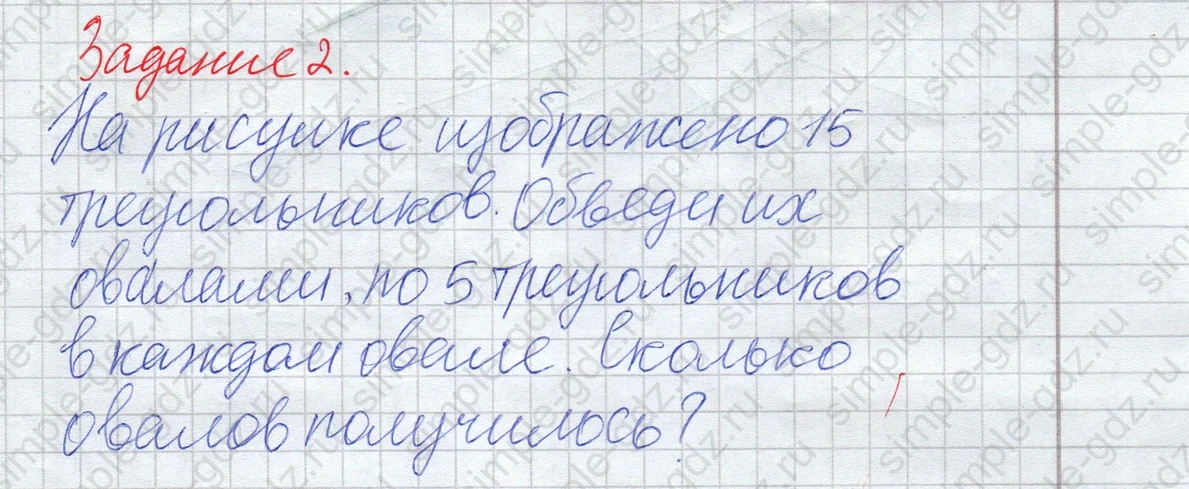 Задание 2.
На рисунке изображено 15
треугольников. Обведи их
овалами, по 5 треугольников
в каждом овале. Сколько
овалов получилось?
simple-gdz.ru